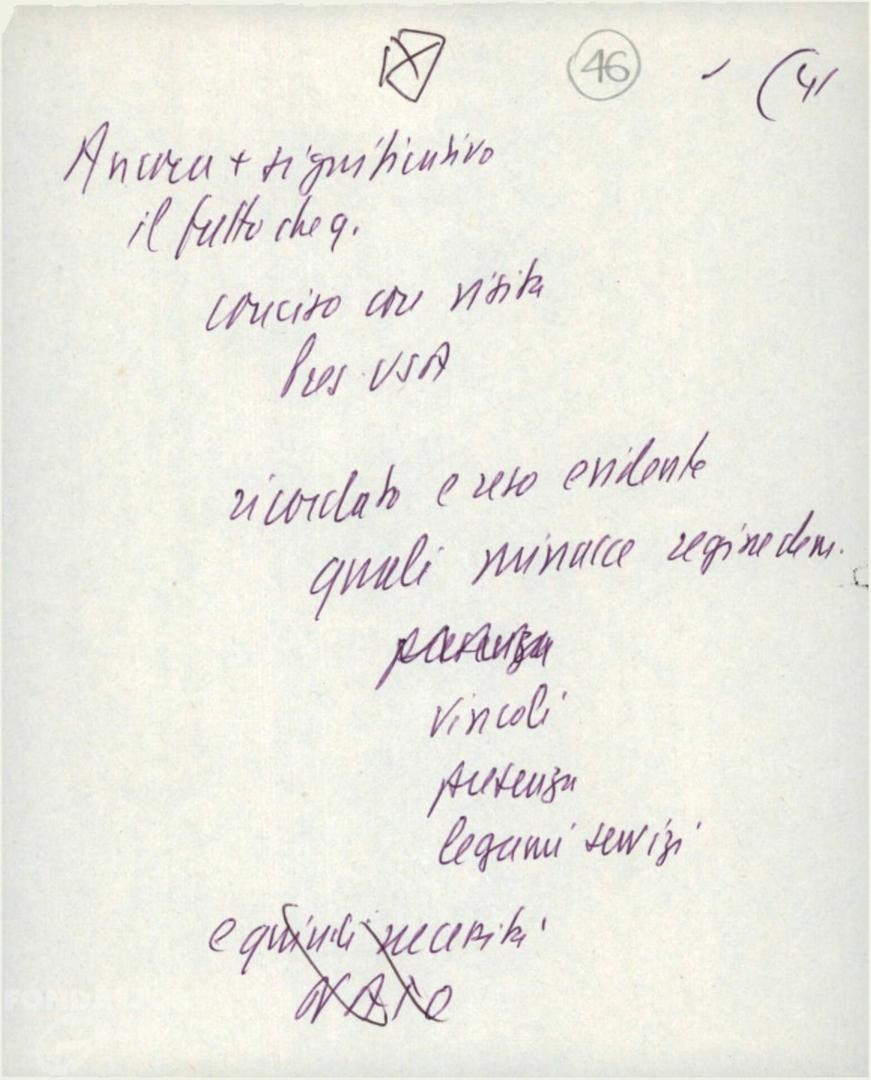 46 (41
Ancora + significativo
il fatto che q.
conciso con visita
Pres. USA
ricordato e reso evidente
quali minacce regime dem.
presenza
vincoli
presenza
legami servizi
e quindi necessità
NATO
FONDAZIONE